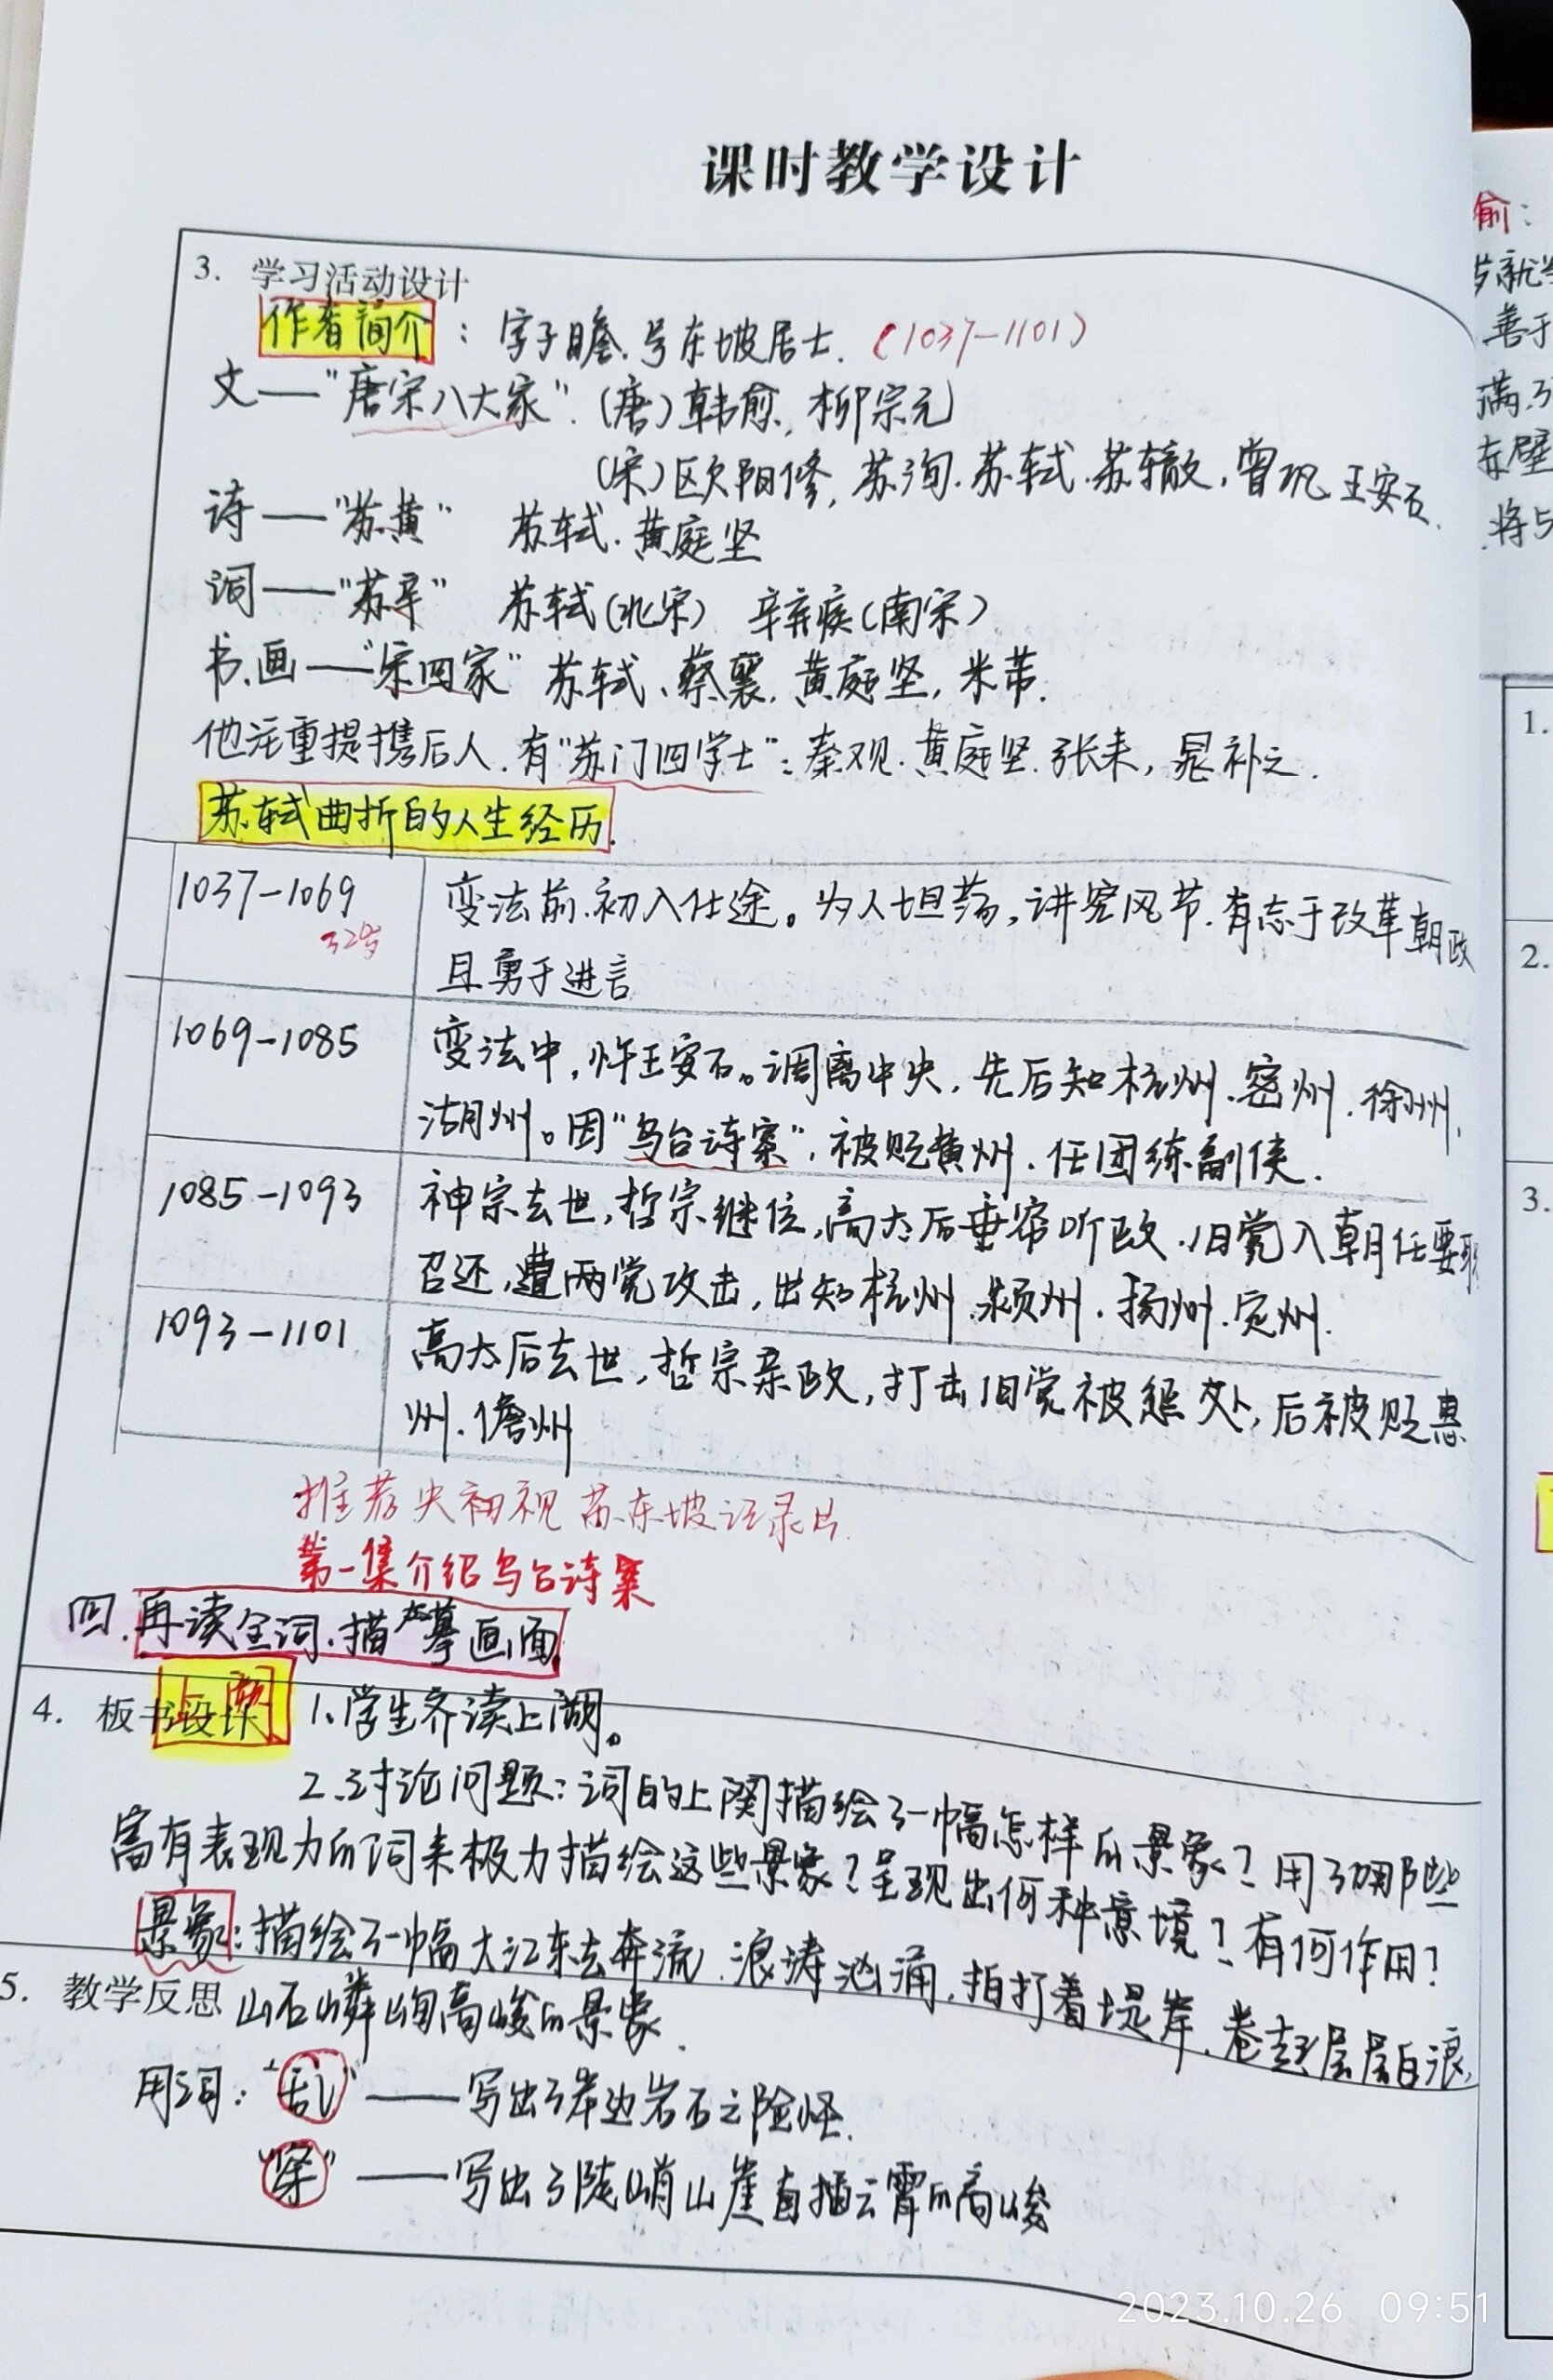 课时教学设计
3. 学习活动设计
作者简介：字子瞻.号东坡居士.（1037-1101）
文——"唐宋八大家".(唐)韩愈,柳宗元
(宋)欧阳修,苏洵.苏轼.苏辙,曾巩.王安石.
诗——"苏黄" 苏轼.黄庭坚
词——"苏辛" 苏轼(北宋) 辛弃疾(南宋)
书.画——"宋四家" 苏轼、蔡襄.黄庭坚,米芾.
他注重提携后人.有"苏门四学士":秦观.黄庭坚.张耒,晁补之.
苏轼曲折的人生经历.
1037-1069
32岁
变法前.初入仕途。为人坦荡,讲究风节.有志于改革朝政
且勇于进言
1069-1085
变法中,忤王安石。调离中央.先后知杭州.密州.徐州.
湖州。因"乌台诗案".被贬黄州.任团练副使.
1085-1093
神宗去世,哲宗继位,高太后垂帘听政.旧党入朝任要职
召还,遭两党攻击,出知杭州.颍州.扬州.定州.
1093-1101
高太后去世,哲宗亲政,打击旧党被惩处,后被贬惠
州.儋州
推荐央视 苏东坡记录片.
第一集介绍乌台诗案
四.再读全词.描摹画面.
4. 板书设计 1、学生齐读上阕。
2、讨论问题:词的上阕描绘了一幅怎样的景象?用了哪些
富有表现力的词来极力描绘这些景象?呈现出何种意境?有何作用?
景象:描绘了一幅大江东去奔流.浪涛汹涌,拍打着堤岸.卷起层层白浪,
5. 教学反思 山石嶙峋高峻的景象.
用词:"乱"——写出了岸边岩石之险怪.
"穿"——写出了陡峭山崖直插云霄的高峻
俞:
岁就学
善于
满.
赤壁
将与
1.
2.
3.
2023.10.26 09:51